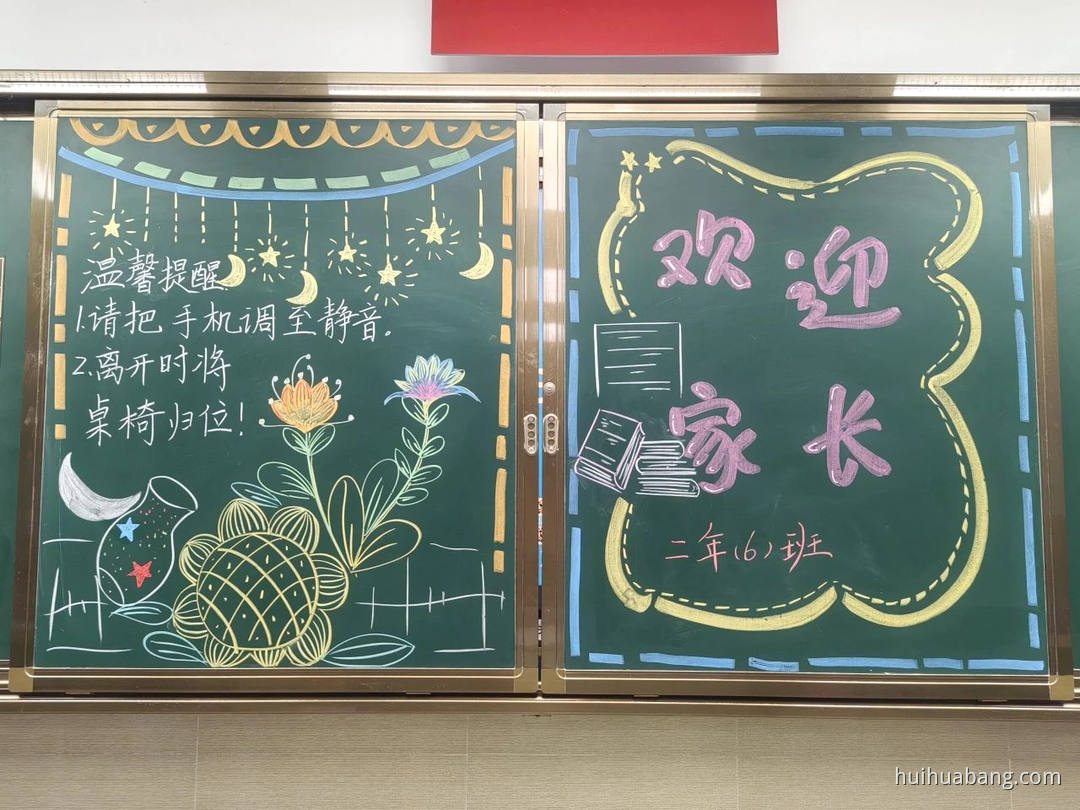 温馨提醒
1.请把手机调至静音。
2.离开时将
桌椅归位!
欢迎
家长
二年(6)班
huihuabang.com